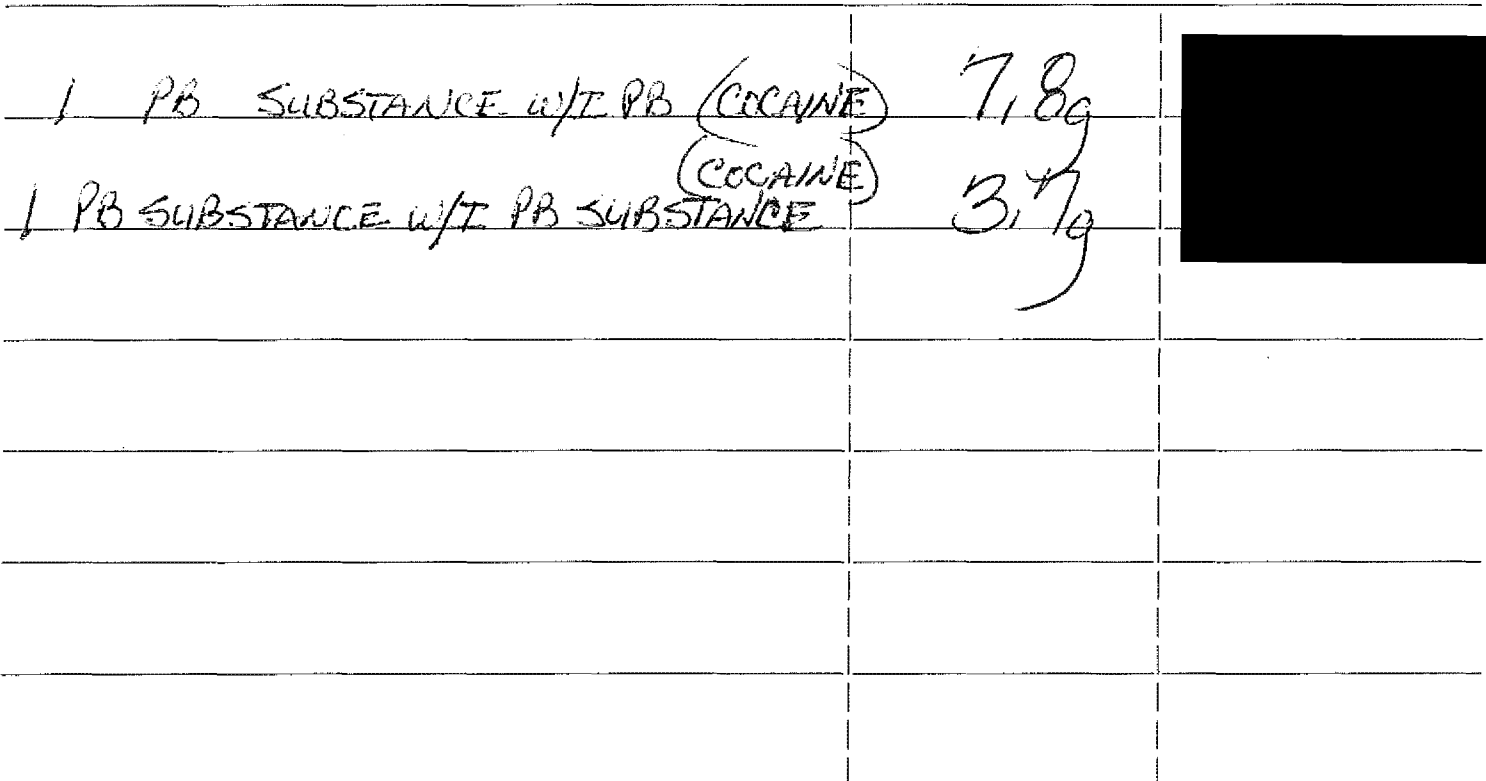 1 PB SUBSTANCE W/I PB (COCAINE) 7.8g
(COCAINE)
1 PB SUBSTANCE W/I PB SUBSTANCE 3.7g